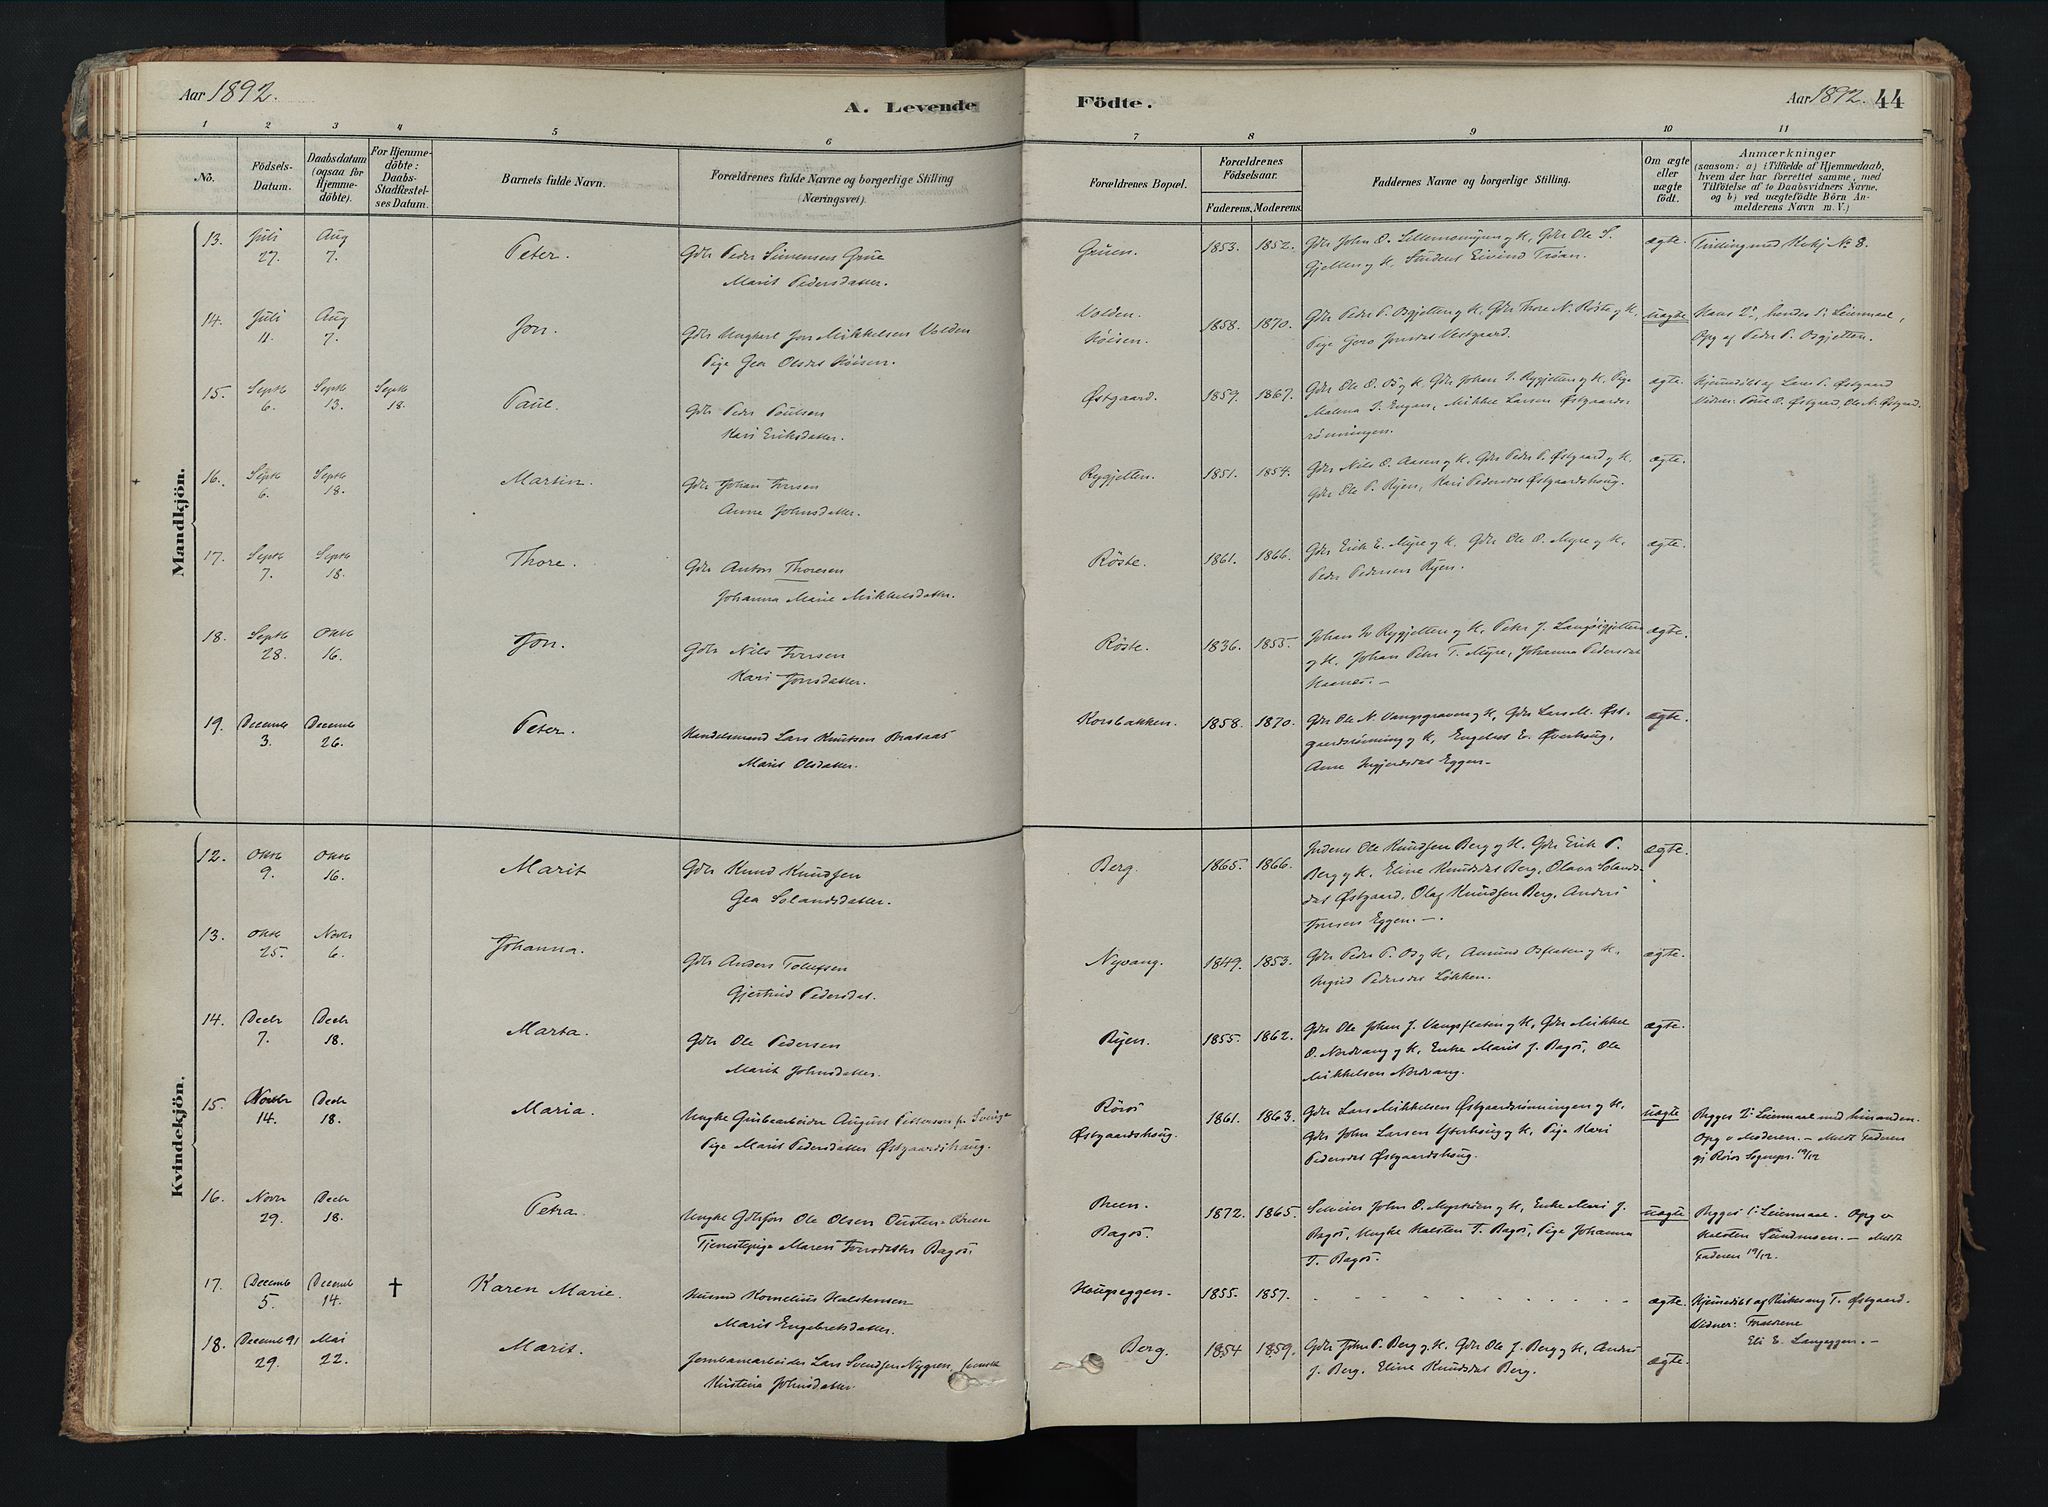 Aar 1892.
A. Levende Födte.
Aar 1892. 44
1 2 3 4 5 6 7 8 9 10 11
No.
Födsels-Datum.
Daabsdatum (ogsaa for Hjemmedöbte).
For Hjemmedöbte: Daabs-Stadfæstelses Datum.
Barnets fulde Navn.
Forældrenes fulde Navne og borgerlige Stilling (Næringsvei).
Forældrenes Bopæl.
Forældrenes Födselsaar.
Faderens. Moderens.
Faddernes Navne og borgerlige Stilling.
Om ægte eller uægte födt.
Anmærkninger
(saasom: a) i Tilfælde af Hjemmedaab, hvem der har forrettet samme, med Tilföielse af to Daabsvidners Navne, og b) ved uægtefödte Börn Anmelderens Navn m. V.)
Mandkjön.
13. Juli 27. Aug 7. Peter. Gdbr Peder Simensen Grue
Marit Pedersdatter. Gruen. 1853. 1852. Gdbr John O. Lillemoengen og K, Gdbr Ole S.
Gjelten og K, Student Eivind Tröan. ægte. Tvilling med Kvkj No 8.
14. Juli 11. Aug 7. Jon. Gdbr Ungkarl Jon Mikkelsen Volden
Pige Gea Olsdat Höisen. Volden. Höisen. 1858. 1870. Gdbr Peder P. Osgjelten og K, Gdbr Thore N. Röste og K,
Pige Goro Jonsdat Vestgaard. uægte Hans 2', hendes 1' Leiermaal,
Opg af Peder P. Osgjelten.
15. Septb 6. Septb 13. Septb 18. Paul. Gdbr Peder Poulsen
Kari Eriksdatter. Østgaard. 1859. 1867. Gdbr Ole O. Os og K, Gdbr Johan I. Rygjelten og K, Pige
Malena J. Engan, Mikkel Larsen Østgaards-
rönningen. ægte. Hjemmedöbt af Lars P. Østgaard
Vidner: Poul O. Østgaard, Ole N. Østgaard.
16. Septb 6. Septb 18. Martin. Gdbr Johan Iversen
Anne Johnsdatter. Rygjelten. 1851. 1854. Gdbr Nils O. Aasen og K, Gdbr Peder P. Østgaard og K,
Gdbr Ole P. Ryen, Kari Pedersdat Østgaardshoug. ægte.
17. Septb 7. Septb 18. Thore. Gdbr Anton Thoresen
Johanna Marie Mikkelsdatter. Röste. 1861. 1866. Gdbr Erik E. Myre og K, Gdbr Ole O. Myre og K,
Peder Pedersen Ryen. ægte.
18. Septb 28. Oktb 16. Jon. Gdbr Nils Iversen
Kari Jonsdatter. Röste. 1836. 1855. Johan Iv Rygjelten og K, Peter J. Langöigjelten
og K, Johan Peter T. Myre, Johanna Pedersdat
Haanes. – ægte.
19. Decemb 3. Decemb 26. Peter. Handelsmand Lars Knutsen Brataas
Marit Olsdatter. Korsbakken. 1858. 1870. Gdbr Ole N. Vangsgraven og K, Gdbr Lars M. Øst-
gaardsrönning og K, Engebret E. Øverhoug,
Anne Ingjersdat Eggen – ægte.
Kvindekjön.
12. Oktb 9. Oktb 16. Marit Gdbr Knud Knudsen
Gea Sslandsdatter. Berg. 1865. 1866. Inders Ole Knudsen Berg og K, Gdbr Erik P.
Berg og K, Eline Knudsdat Berg, Olava
dat Østgaard, Olaf Knudsen Berg, Anders
Iversen Eggen. –. ægte.
13. Oktb 25. Novbr 6. Johanna. Gdbr Anders Tollefsen
Gjertrud Pedersdat. Nyvang. 1849. 1853. Gdbr Peder P. Os og K, Amund Osflaten og K,
Ingrid Pedersdat Løkken. ægte.
14. Decbr 7. Decbr 18. Marta. Gdbr Ole Pedersen
Marit Johnsdatter. Ryen. 1855. 1862. Gdbr Ole Johan J. Vangsflaten og K, Gdbr Mikkel
O. Nordvang og K, Enke Marit J. Bagös, Ole
Mikkelsen Nordvang. ægte.
15. Novbr 14. Decbr 18. Maria. Ungke Grubearbeider August Pettersson fr Sverige
Pige Marit Pedersdatter Østgaardshaug. Röros Østgaardshoug. 1861. 1863. Gdbr Lars Mikkelsen Østgaardsrönningen og K,
Gdbr John Larsen Ytterhoug og K, Pige Kari
Pedersdat Østgaardshoug. uægte Begges 2' Leiermaal med hinanden.
Opg v Moderen. – Meldt Faderen
gj Röros Sognepr. 19/12
16. Novbr 29. Decbr 18. Petra. Ungke Gdbrsön Ole Olsen Ousten Breen
Tjenestepige Maren Iversdatter Bagös. Breen. Bagös. 1872. 1865. Selveier John O. Myrmoen og K, Enke Mari J.
Bagös, Ungke Halsten T. Bagös, Pige Johanna
T. Bagös. uægte Begges 1' Leiermaal. Opg v
Halsten Simensen. – Meldt
Faderen 19/12.
17. Decemb 5. Decemb 14. † Karen Marie. Husmd Kornelius Halstensen
Marit Engebretsdatter. Hougseggen. 1855. 1857. - - - - - - - - ægte. Hjemmedöbt af Kirkesang T. Østgaard.
Vidner: Forældrene
Eli E. Langeggen. –
18. Decemb 91 29. Mai 22. Marit. Jernbanearbeider Lars Svendsen Nygren, svensk
Kristina Johnsdatter. Berg. 1854 1859. Gdbr John P. Berg og K, Gdbr Ole J. Berg og K, Anders
J. Berg, Eline Knudsdat Berg. ægte.